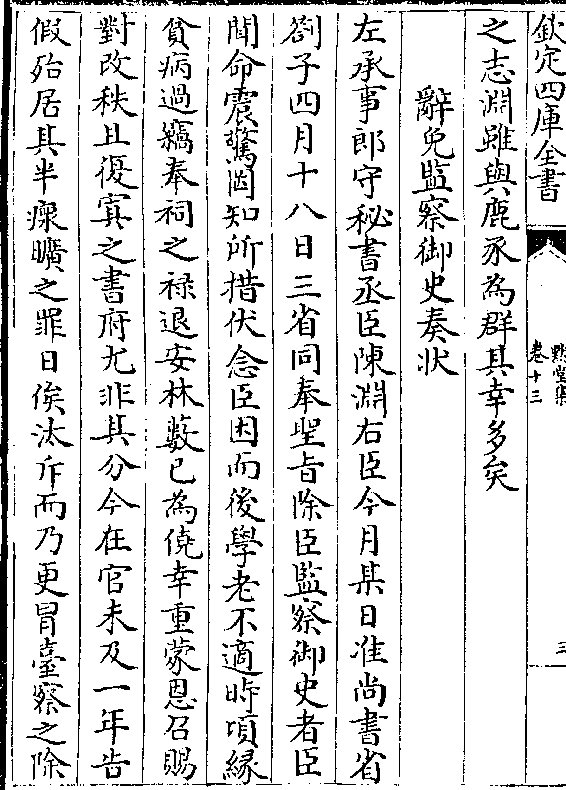 欽定四庫全書
黙堂集
卷十三
三
之志淵雖與鹿豕為群其幸多矣
辭免監察御史奏狀
左承事郎守秘書丞臣陳淵右臣今月某日准尚書省
劄子四月十八日三省同奉聖旨除臣監察御史者臣
聞命震驚罔知所措伏念臣困而後學老不適時頃縁
貧病過竊奉祠之禄退安林藪已為僥幸重蒙恩召賜
對改秩且復寘之書府尤非其分今在官未及一年告
假殆居其半瘝曠之罪日俟汰斥而乃更冒臺察之除